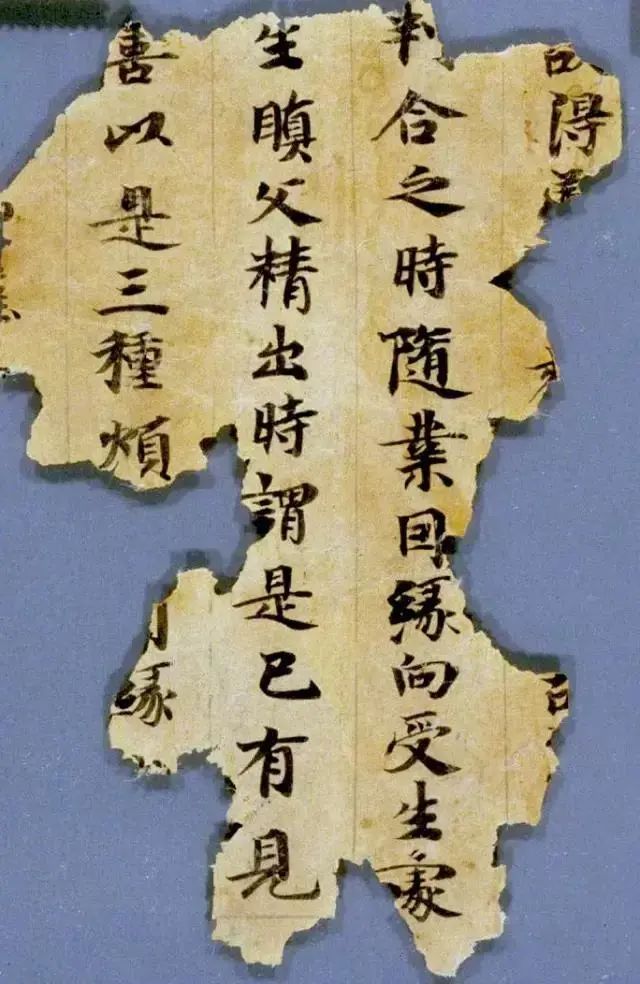 得
判合之時隨業囙緣向受生處
生瞋父精出時謂是已有見
喜以是三種煩 緣